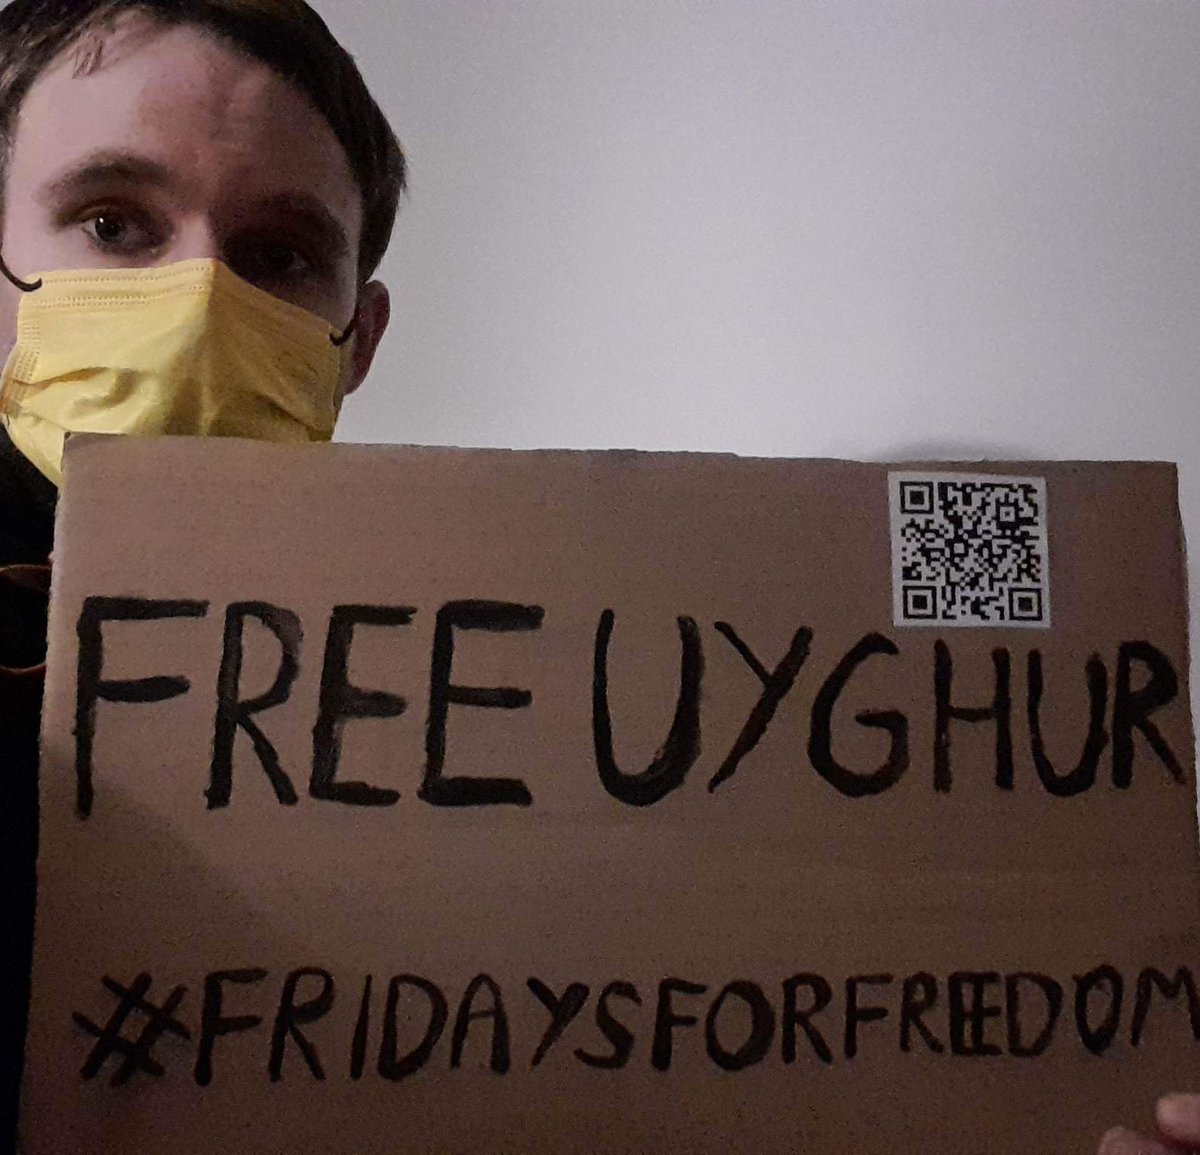 FREE UYGHUR
#FRIDAYSFORFREEDOM